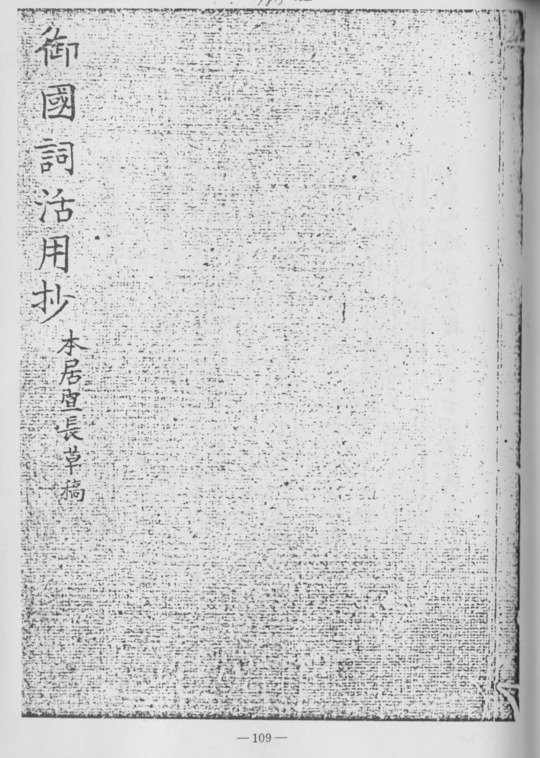 御國詞活用抄
本居宣長草稿
— 109 —